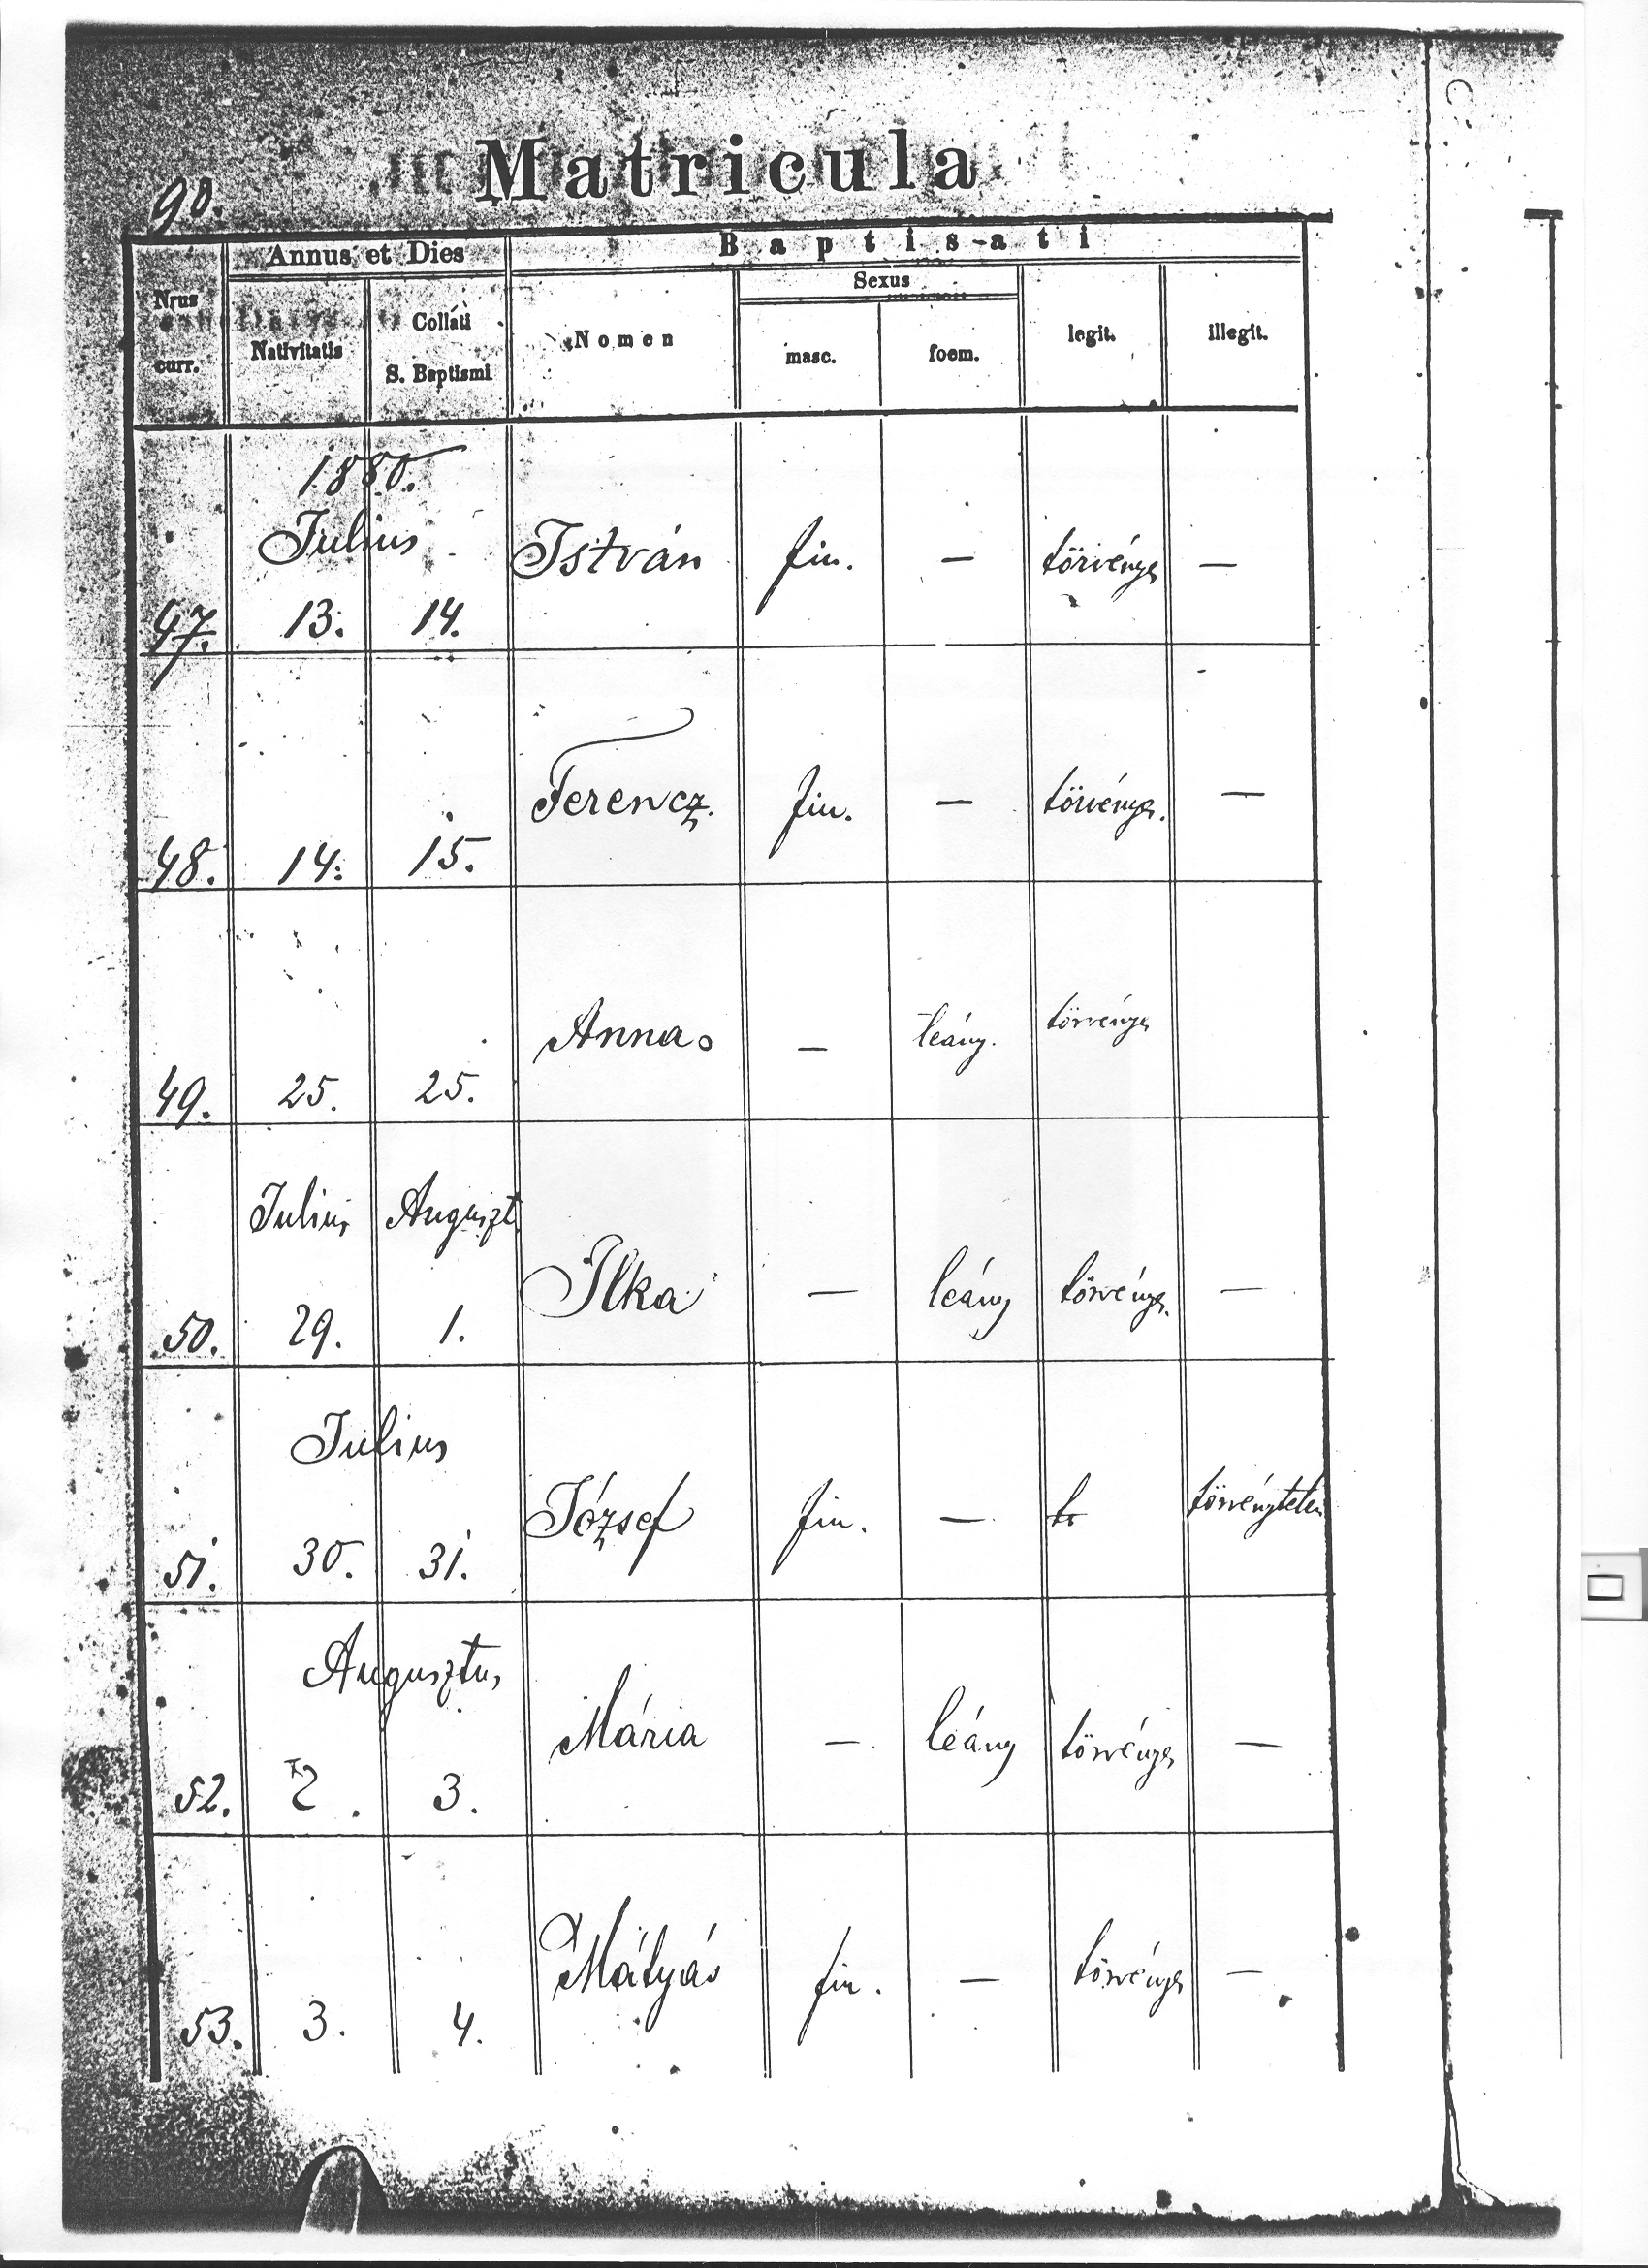 Matricula
90.
Annus et Dies
Baptisati
Nrus
curr.
Nativitatis
Collati
S. Baptismi
Nomen
Sexus
masc.
foem.
legit.
illegit.
1880.
Julius
47. 13. 14. István fiu. — törvényes —
48. 14. 15. Ferencz. fiu. — törvényes. —
49. 25. 25. Anna. — leány. törvényes
Julius Auguszt.
50. 29. 1. Ilka — leány törvényes. —
Julius
51. 30. 31. József fiu. — törvénytelen
Augusztus
52. 2. 3. Mária — leány törvényes —
53. 3. 4. Mátyás fiu. — törvényes —